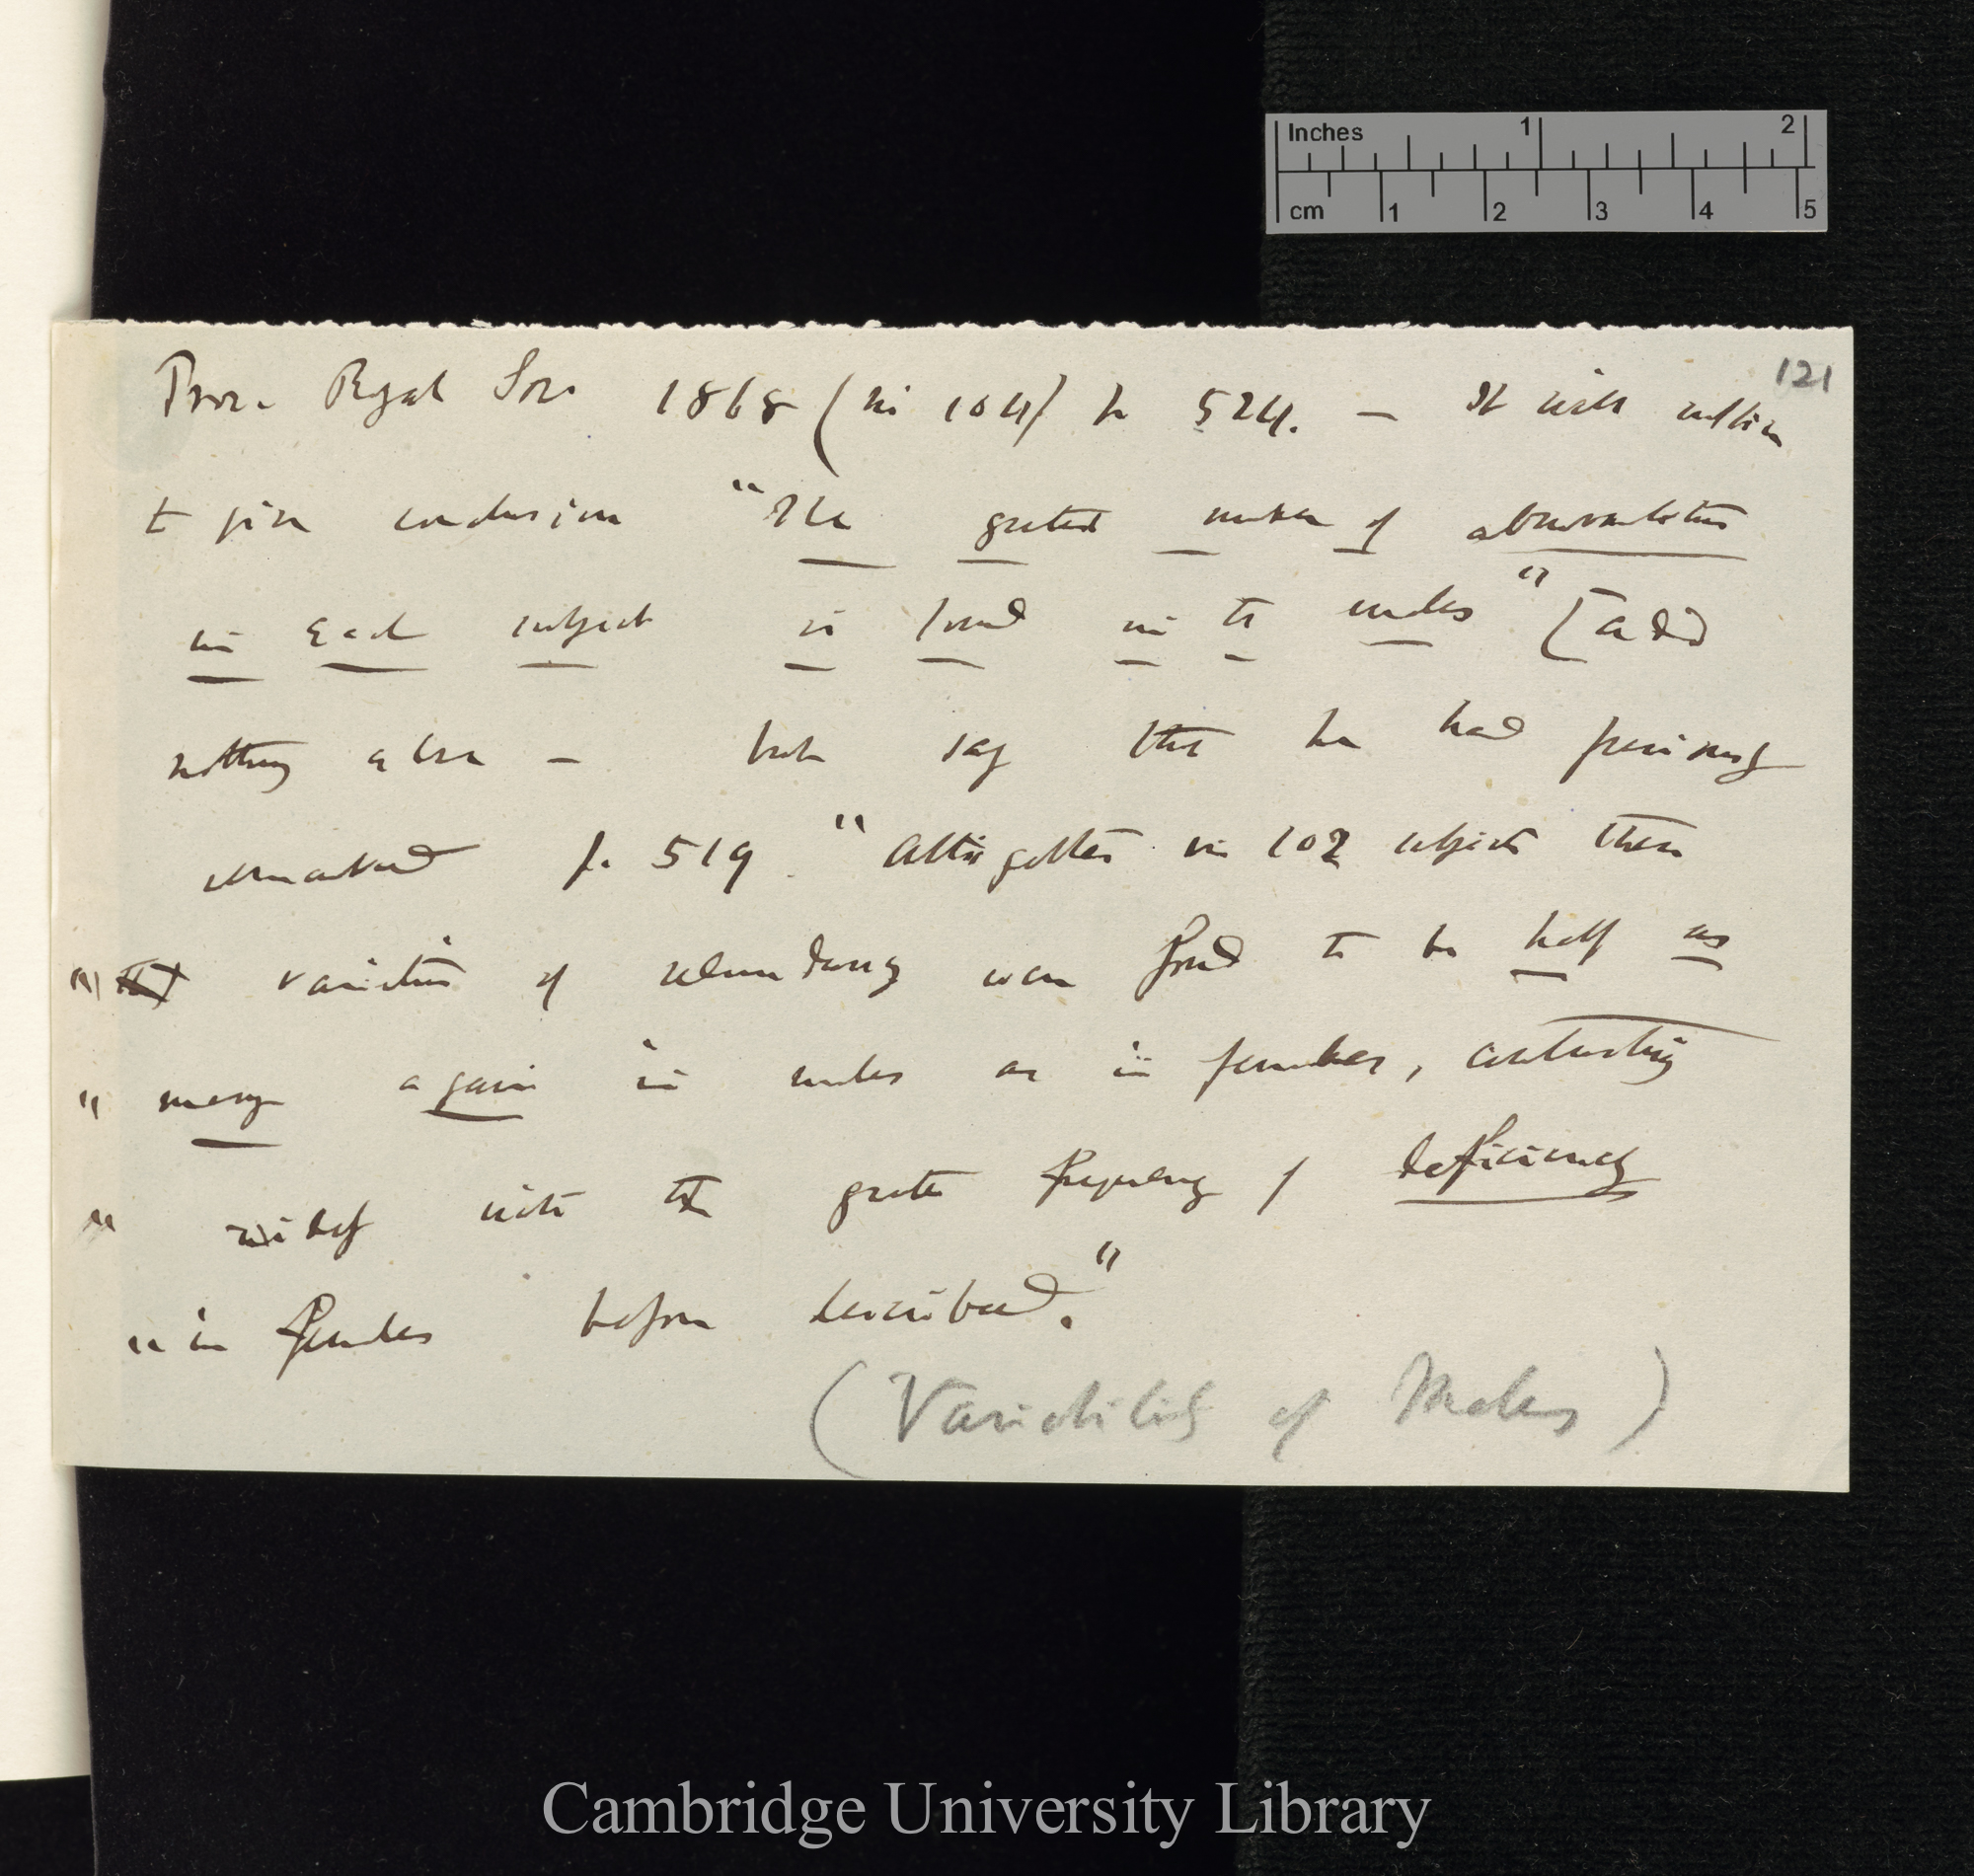 Inches 1 2
cm 1 2 3 4 5
121
Proc. Royal Soc. 1868 (in 104) p 524. — It will suffice
to give conclusion "The greatest number of abnormalities
in each subject is found in the males" [add
nothing above — but say that he had previously
remarked p. 519 "Altogether in 102 subjects these
" varieties of redundancy were found to be half as
" many again in males as in females, contrasting
" widely with the greater frequency of deficiency
" in females before described."
(Variability of Males)
Cambridge University Library